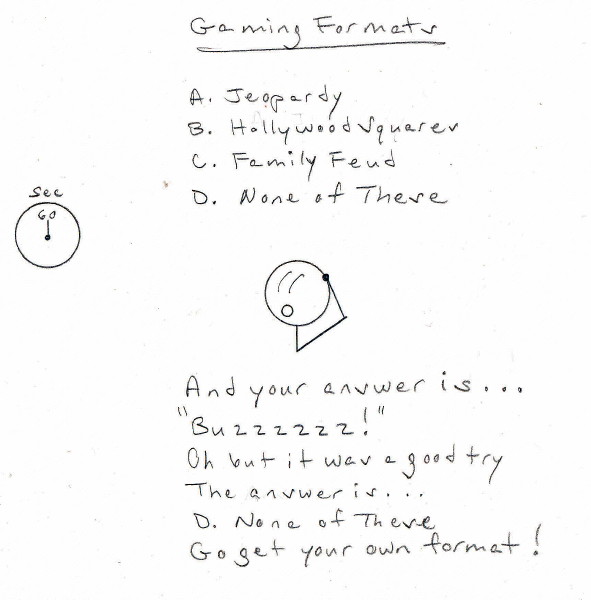 Gaming Formats
A. Jeopardy
B. Hollywood Squares
C. Family Feud
D. None of These
Sec
60
And your answer is...
"Buzzzzzz!"
Oh but it was a good try
The answer is...
D. None of These
Go get your own format!